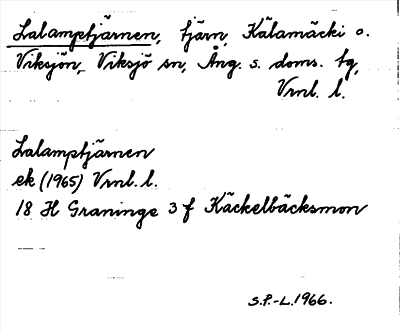 Lalamptjärnen, tjärn, Kälamäcki o.
Viksjön, Viksjö sn, Ång. s. doms. tg,
Vrnl. l.
Lalamptjärnen
ek (1965) Vrnl. l.
18 H Graninge 3 f Käckelbäcksmon
S.P.-L. 1966.